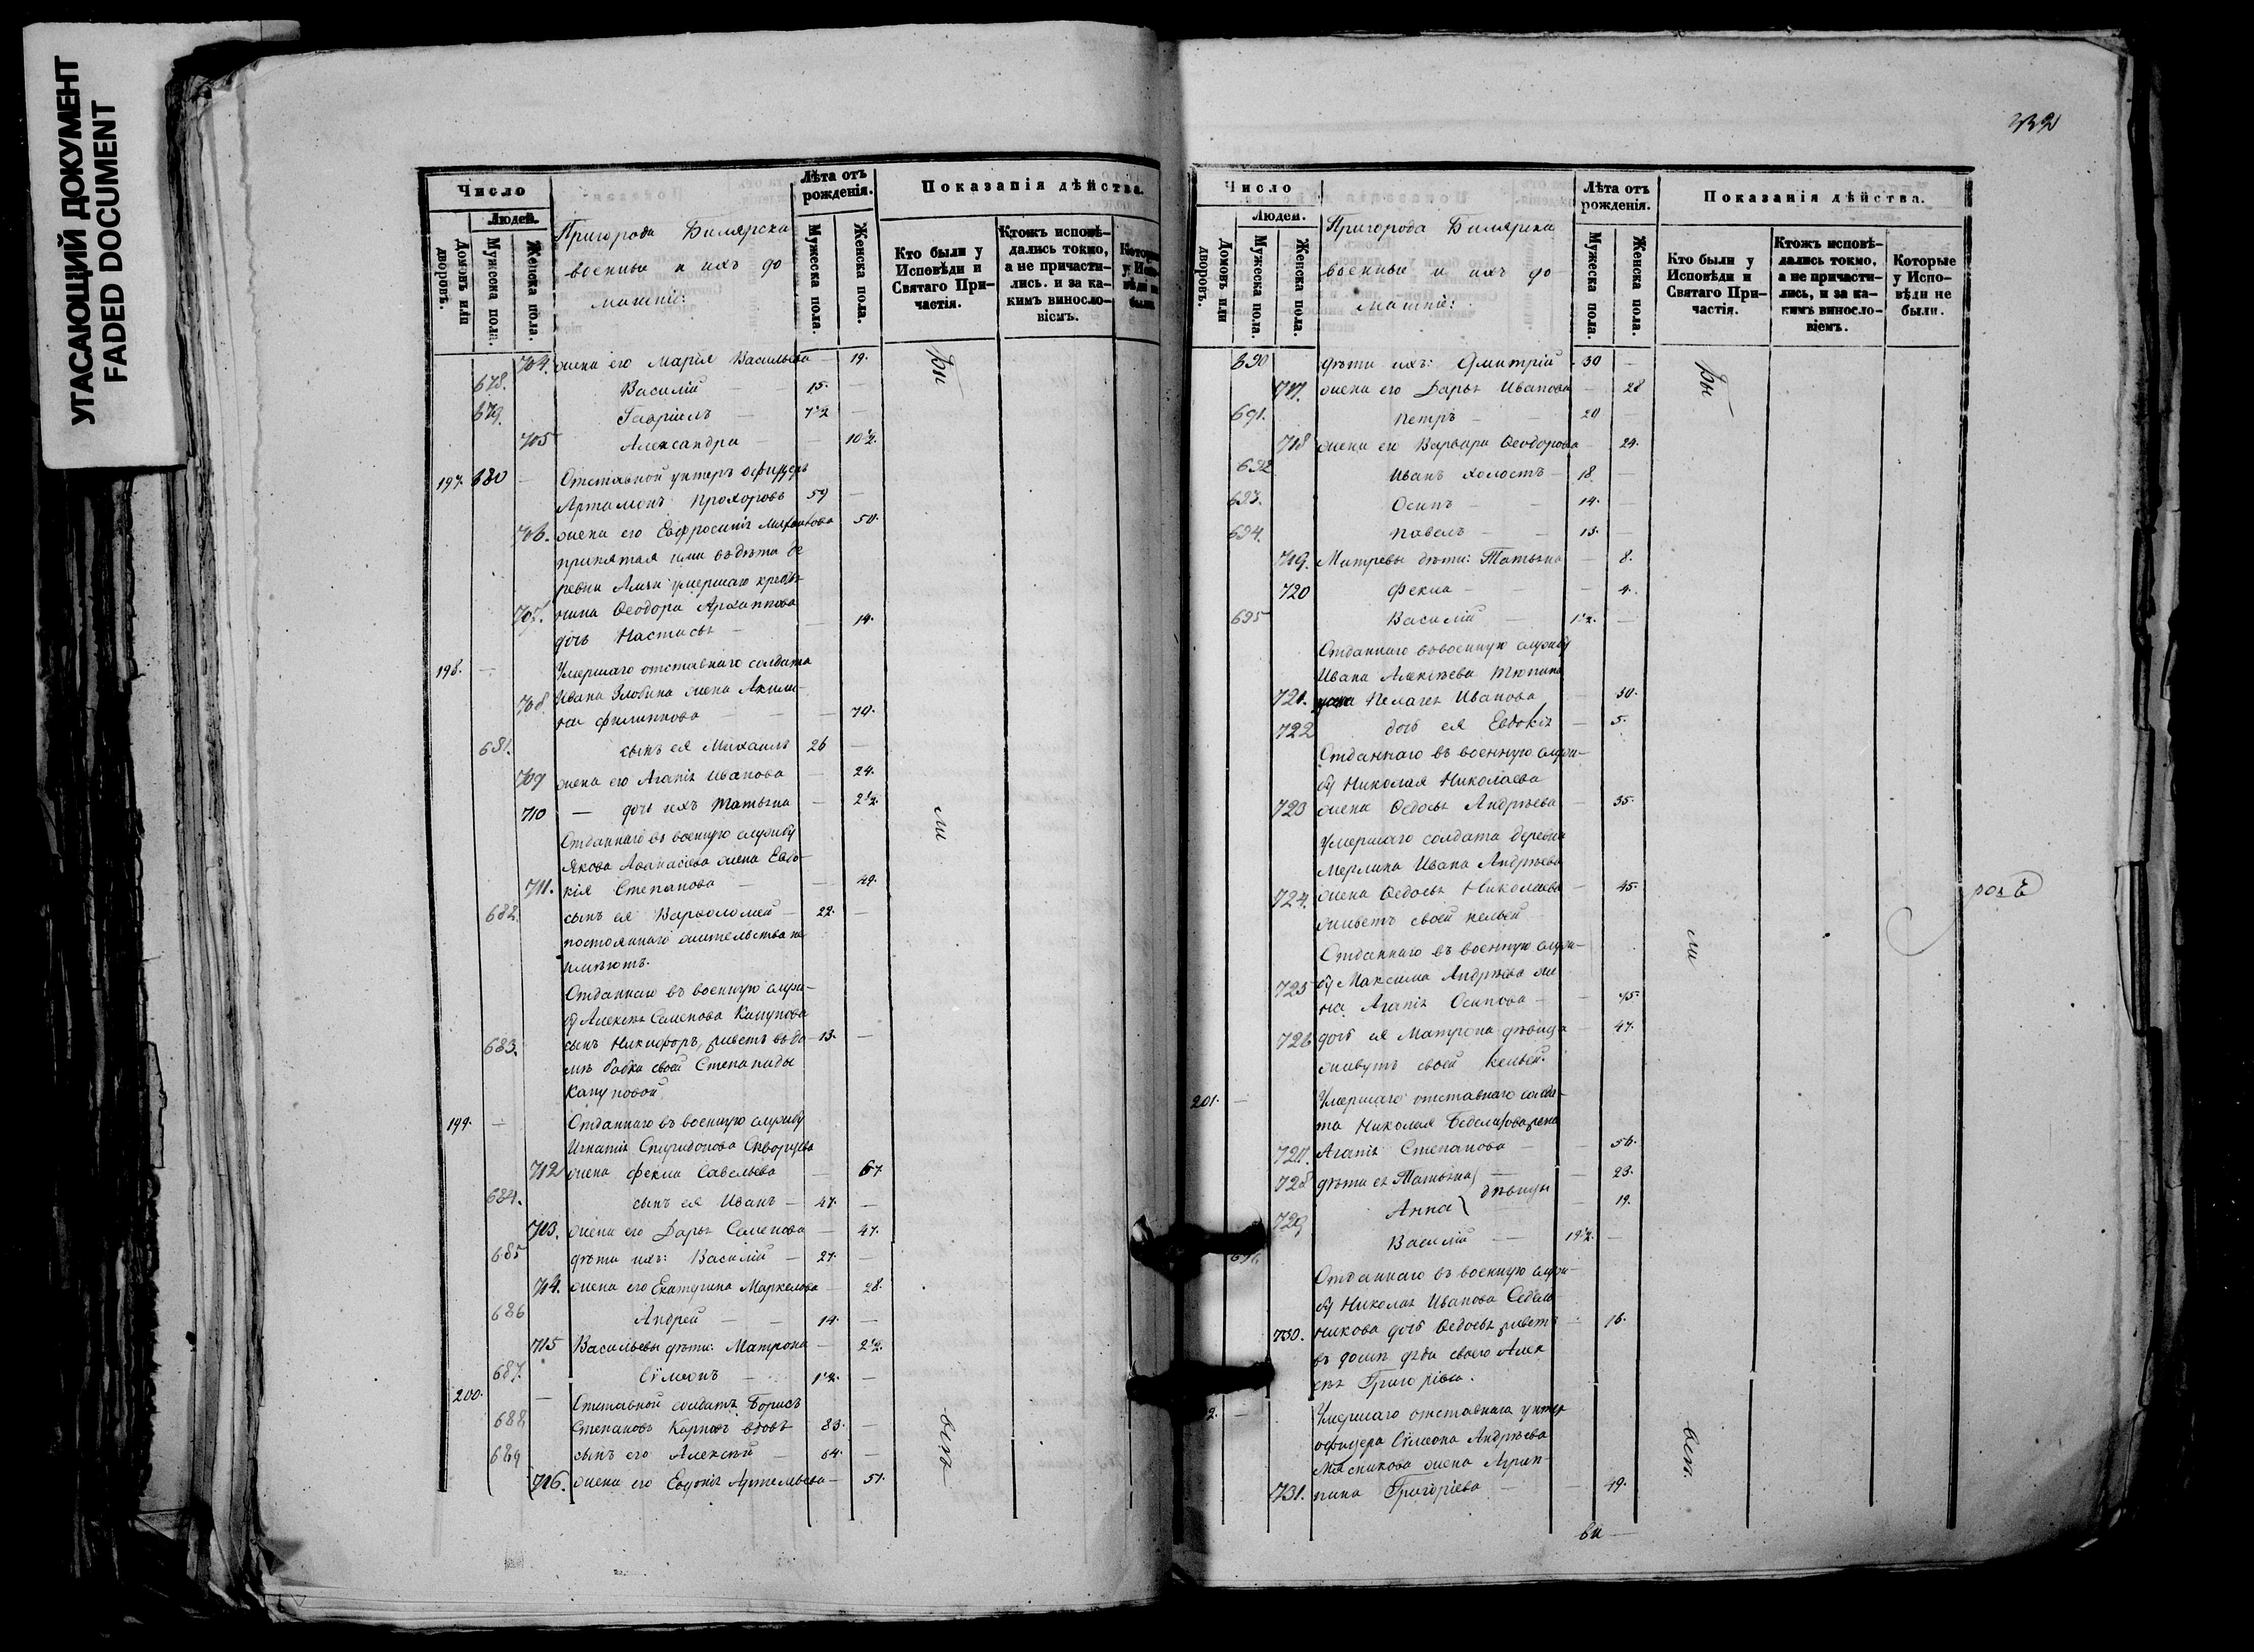 УГАСАЮЩИЙ ДОКУМЕНТ
FADED DOCUMENT
Число
Людей.
Домовъ или дворовъ.
Мужеска пола.
Женска пола.
Пригорода Билярска
военные и ихъ до
машніе:
Лѣта отъ рожденія.
Мужеска пола.
Женска пола.
Показанія дѣйства.
Кто были у Исповѣди и Святаго При-частія.
Ктожъ исповѣ-дались токмо, а не причасти-лись. и за ка-кимъ виносло-віемъ.
704. жена его Марія Васильева — 19.
678. Василій — 15. —
679. Гавріилъ — 7 1/2 —
705 Александра — — 10 1/2.
197. 680 — Отставной унтеръ офицеръ
Артамонъ Прохоровъ 59 —
706. жена его Евфросинія 50.
принятая ими въ дѣти де
ревни умершаго кресть
707. нина Ѳеодора Архиппова
дочь Настасья — — 14.
198. — Умершаго отставнаго солдата
708 Ивана Злобина жена Акили-
на Филиппова — — 70.
681. сынъ ея Михаилъ 26 —
709 жена его Агапія Иванова — 24.
710 — дочь ихъ Татьяна — 2 1/2.
Отданнаго въ военную службу
Якова Аѳанасьева жена Евдо-
711. кія Степанова — — 49.
682. сынъ ея Варѳоломей — 22. —
постояннаго жительства не
имѣютъ.
Отданнаго въ военную служ-
бу Алексѣя Семенова Капунова
683. сынъ Никифоръ, живетъ въ до- 13. —
мѣ бабки своей Степаниды
Капуновой
199. — Отданнаго въ военную службу
Игнатія Спиридонова Скворцова
712 жена Фекла Савельева — 67
684. сынъ ея Иванъ — 47. —
713. жена его Дарья Семенова — 47.
685 дѣти ихъ: Василій — 27. —
714. жена его Екатерина Маркелова — 28.
686 Андрей — — 14. —
715 Васильевы дѣти: Матрона — 2 1/2.
687. Сѵмеонъ — 1 1/2. —
200. — Отставной солдатъ Борисъ
688 Степановъ Карповъ вдовъ 83. —
689 сынъ его Алексѣй — 64. —
716. жена его Евдокія — 51.
бы
ли
всѣ
Число
Людей.
Домовъ или дворовъ.
Мужеска пола.
Женска пола.
Пригорода Билярска
военные и ихъ до
машніе:
Лѣта отъ рожденія.
Мужеска пола.
Женска пола.
Показанія дѣйства.
Кто были у Исповѣди и Святаго При-частія.
Ктожъ исповѣ-дались токмо, а не причасти-лись, и за ка-кимъ виносло-віемъ.
Которые у Испо-вѣди не были.
690 дѣти ихъ: Дмитрій 30 —
717. жена его Дарья Иванова — 28
691. Петръ — 20 —
718 жена его Варвара Ѳеодорова — 24.
692 Иванъ холостъ — 18 —
693. Осипъ — — 14. —
694. Павелъ — — 13. —
719. Митревы дѣти: Татьяна — 8.
720 Фекла — — — 4.
695 Василій — 1 1/2. —
Отданнаго въ военную службу
Ивана Алексѣева
721. жена Пелагея Иванова — 30.
722 дочь ея Евдокія — 5.
Отданнаго въ военную служ-
бу Николая Николаева
723 жена Ѳедосья Андреева — 35.
Умершаго солдата деревни
Мерлина Ивана Андреева
724. жена Ѳедосья Николаева — 45.
живетъ своей кельей
Отданнаго въ военную служ-
725 бу Максима Андреева же
на Агапія Осипова — — 75.
726 дочь ея Матрона дѣвица — 47.
живутъ своей кельей.
201. — Умершаго отставнаго солда-
та Николая жена
727. Агапія Степанова — — 56.
728 дѣти ея Татьяна — — 23.
729 Анна } дѣвицы — 19.
696 Василій — — 19 1/2. —
Отданнаго въ военную служ-
бу Николая Иванова Седель
730. никова дочь Ѳедосья живетъ — 16.
въ домѣ дѣда своего Алек
сѣя Григорьева.
— Умершаго отставнаго унтер
офицера Сѵмеона Андреева
Мясникова жена Агрип-
731. пина Григорьева — — 49.
бы
ли
всѣ.